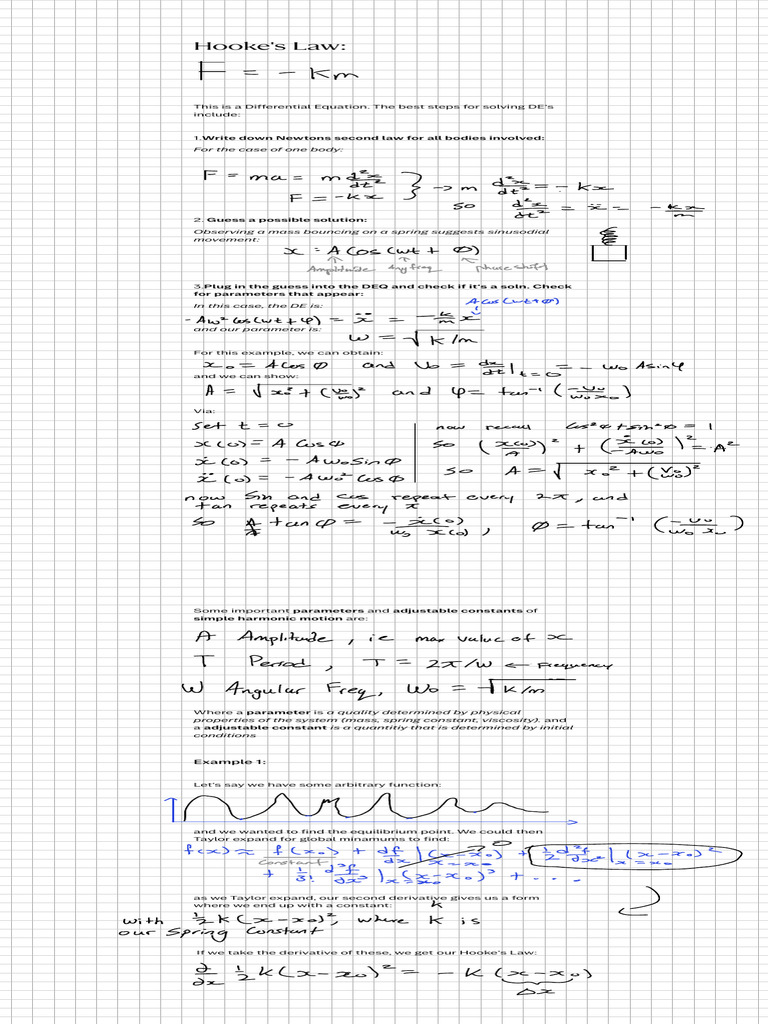 Hooke's Law:
F = - km
This is a Differential Equation. The best steps for solving DE's
include:
1.Write down Newtons second law for all bodies involved:
For the case of one body:
F = ma = m d²x/dt² } → m d²x/dt² = - kx
F = -kx
so d²x/dt² = ẍ = - kx/m
2. Guess a possible solution:
Observing a mass bouncing on a spring suggests sinusodial
movement:
x = A Cos (wt + Ø)
Amplitude Ang freq phase shift
3.Plug in the guess into the DEQ and check if it's a soln. Check
for parameters that appear:
A cos(wt+Ø)
In this case, the DE is:
- Aω² cos(wt+φ) = ẍ = - k/m x
and our parameter is:
w = √k/m
For this example, we can obtain:
x₀ = A Cos Ø and v₀ = dx/dt |t=0 = - w₀ A sin φ
and we can show:
A = √x₀² + (v₀/w₀)² and φ = tan⁻¹ (-v₀/w₀x₀)
Via:
Set t = 0
x(0) = A Cos Ø
ẋ(0) = - A w₀ Sin Ø
ẍ(0) = - A w₀² Cos Ø
now recall cos²Ø + sin²Ø = 1
so (x(0)/A)² + (ẋ(0)/-Aw₀)² = A²
so A = √x₀² + (v₀/w₀)²
now Sin and cos repeat every 2π, and
tan repeats every π
so A/A tan φ = - ẋ(0)/w₀ x(0) , Ø = tan⁻¹ (-v₀/w₀ x₀)
Some important parameters and adjustable constants of
simple harmonic motion are:
A Amplitude, ie max value of x
T Period, T = 2π/w ← Frequency
W Angular Freq, W₀ = √k/m
Where a parameter is a quality determined by physical
properties of the system (mass, spring constant, viscosity). and
a adjustable constant is a quantitiy that is determined by initial
conditions
Example 1:
Let's say we have some arbitrary function:
and we wanted to find the equilibrium point. We could then
Taylor expand for global minamums to find:
f(x) ≈ f(x₀) + df/dx |x=x₀ (x-x₀) → 0 + ½ d²f/dx² |x=x₀ (x-x₀)²
Constant
+ 1/3! d³f/dx³ |x=x₀ (x-x₀)³ + ...
as we Taylor expand, our second derivative gives us a form
where we end up with a constant: k
with ½ k (x-x₀)², where K is
our Spring Constant
If we take the derivative of these, we get our Hooke's Law:
∂/∂x ½ k (x-x₀)² = - k (x-x₀)
Δx